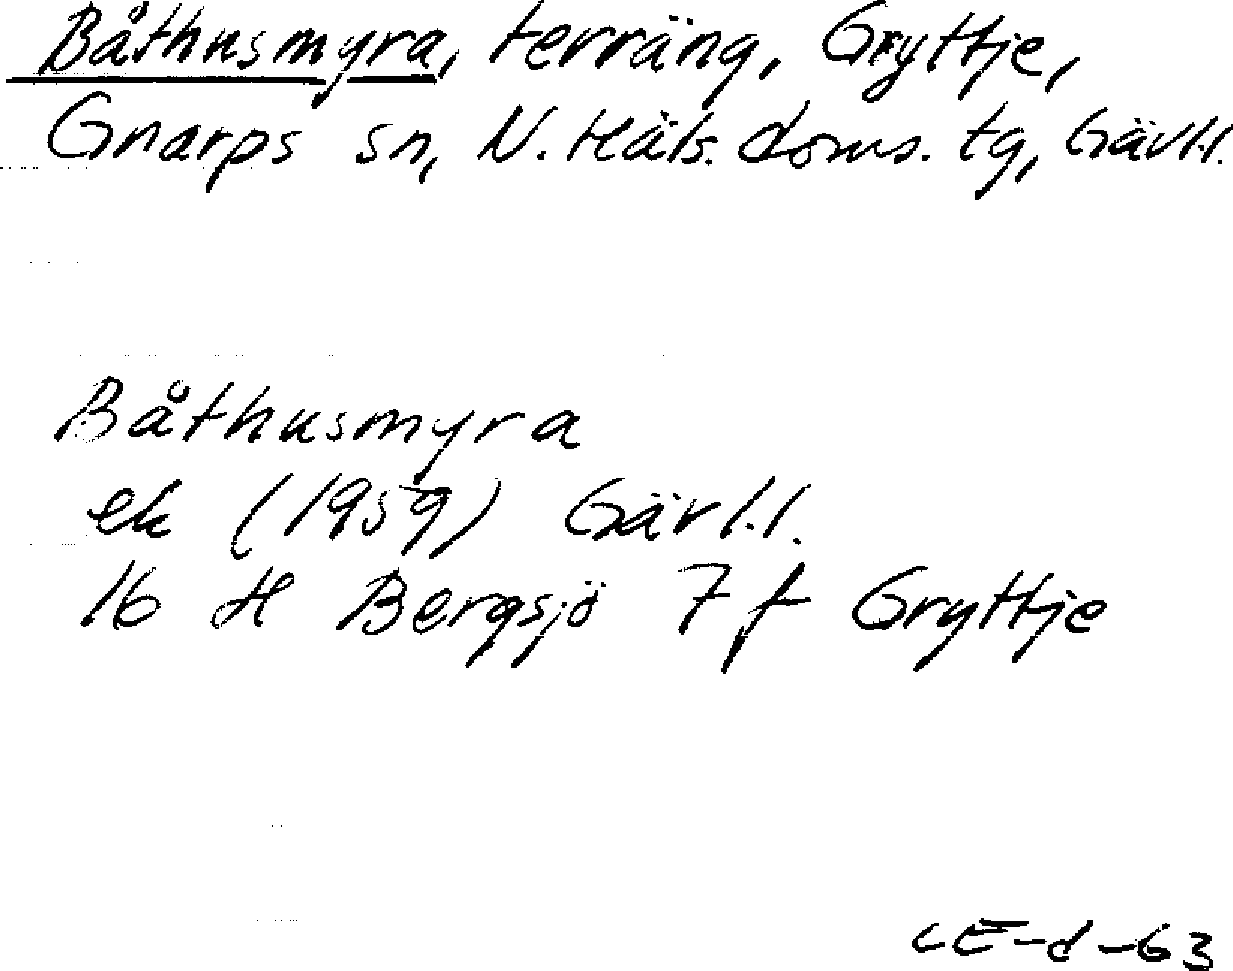 Båthusmyra, terräng, Gryttje,
Gnarps sn, N. Häls. doms. tg, Gävl.l.
Båthusmyra
ek (1959) Gävl.l.
16 H Bergsjö 7 f Gryttje
CE-d-63